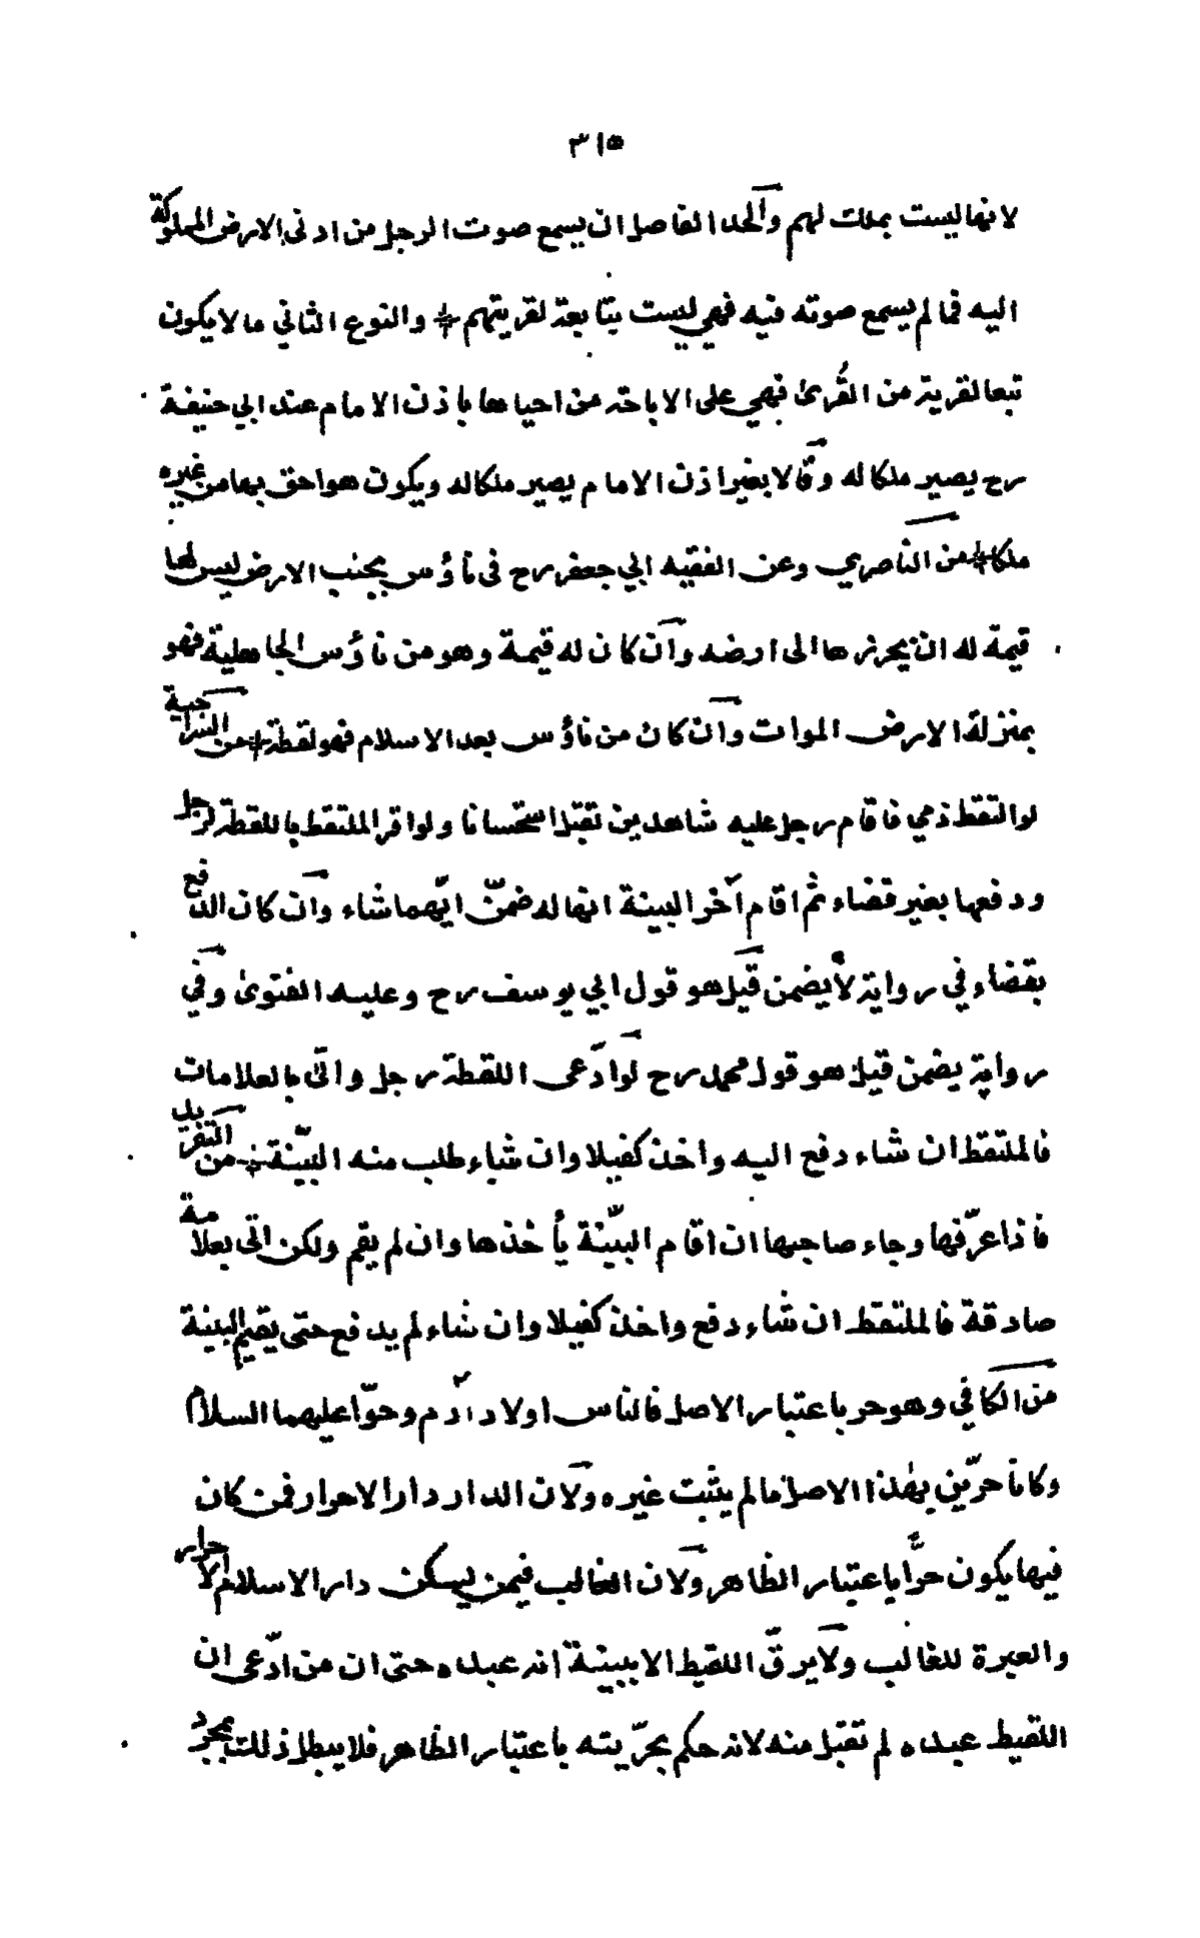 ٣١٥
لانها ليست بملك لهم والحد الفاصل ان يسمع صوت الرجل من ادنى الارض المملوكة
اليه فما لم يسمع صوته فيه فهي ليست بتابعة لقريتهم والنوع الثاني ما لا يكون
تبعا لقرية من القُرىٰ فهي على الاباحة من احياها باذن الامام عند ابي حنيفة
رح يصير ملكا له وقالا بغير اذن الامام يصير ملكا له ويكون هو احق بها من غيره
ملكا من الناصري وعن الفقيه ابي جعفر رح في ناؤس بجنب الارض ليس لها
قيمة له ان يحرزها الى ارضه وان كان له قيمة وهو من ناؤس الجاهلية فهو
بمنزلة الارض الموات وان كان من ناؤس بعد الاسلام فهو لقطة من السراجية
لو التقط ذمي فاقام رجل عليه شاهدين تقبل استحسانا ولو اقر الملتقط باللقطة لرجل
ودفعها بغير قضاء ثم اقام آخر البينة انها له ضمّن ايّهما شاء وان كان الدفع
بقضاء في رواية لا يضمن قيل هو قول ابي يوسف رح وعليه الفتوىٰ وفي
رواية يضمن قيل هو قول محمد رح لو ادّعى اللقطة رجل واتى بالعلامات
فالملتقط ان شاء دفع اليه واخذ كفيلا وان شاء طلب منه البيّنة من التفريد
فاذا عرّفها وجاء صاحبها ان اقام البيّنة يأخذها وان لم يقم ولكن اتى بعلامة
صادقة فالملتقط ان شاء دفع واخذ كفيلا وان شاء لم يدفع حتى يقيم البينة
من الكافي وهو حر باعتبار الاصل فالناس اولاد آدم وحوّا عليهما السلام
وكانا حرّين بهٰذا الاصل ما لم يثبت غيره ولان الدار دار الاحرار فمن كان
فيها يكون حرًّا باعتبار الظاهر ولان الغالب فيمن يسكن دار الاسلام الاحرار
والعبرة للغالب ولا يرقّ اللقيط الا ببينة انه عبده حتى ان من ادّعى ان
اللقيط عبده لم تقبل منه لانه حكم بحرّيته باعتبار الظاهر فلا يبطل ذلك بمجرد